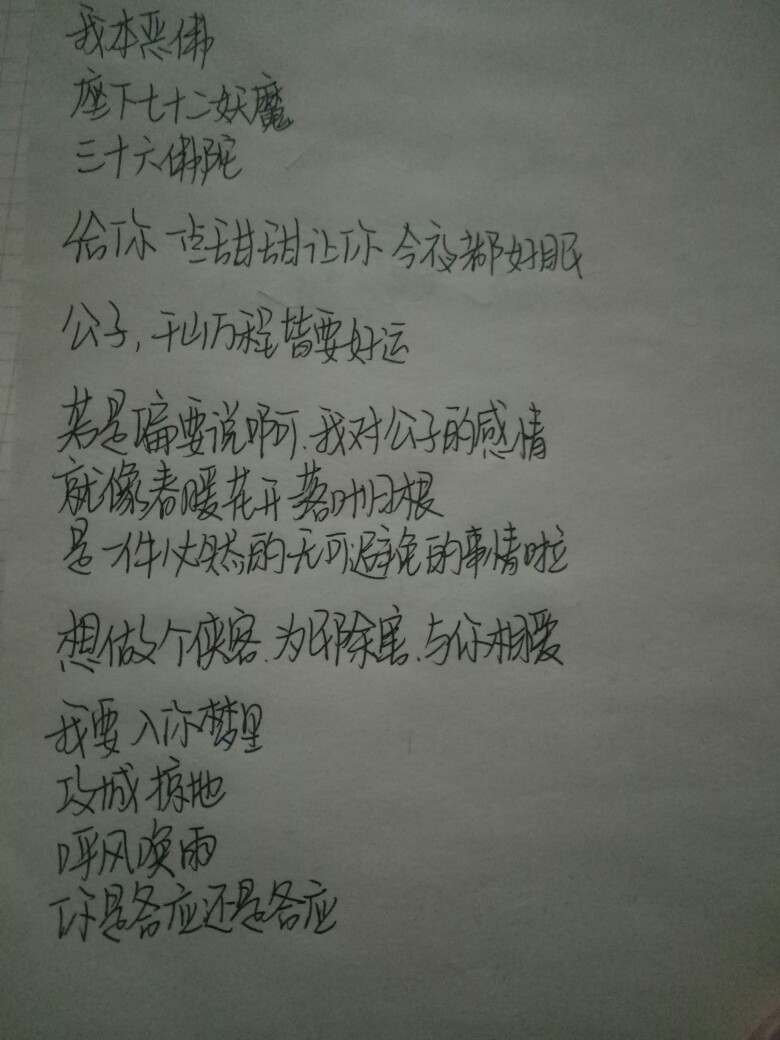 我本恶佛
座下七十二妖魔
三十六佛陀
给你一点甜甜让你今夜都好眠
公子,千山万程皆要好运
若是偏要说啊.我对公子的感情
就像春暖花开落叶归根
是一件必然的无可避免的事情啦
想做个侠客.为民除害.与你相爱
我要入你梦里
攻城掠地
呼风唤雨
你是答应还是答应